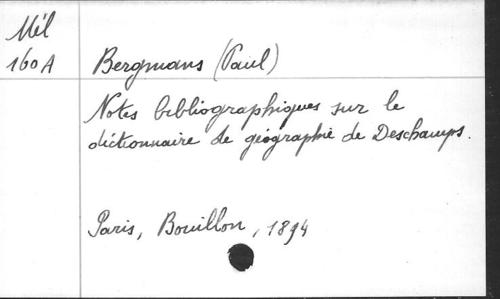 Mél
160A
Bergmans (Paul)
Notes bibliographiques sur le
dictionnaire de géographie de Deschamps.
Paris, Bouillon, 1894